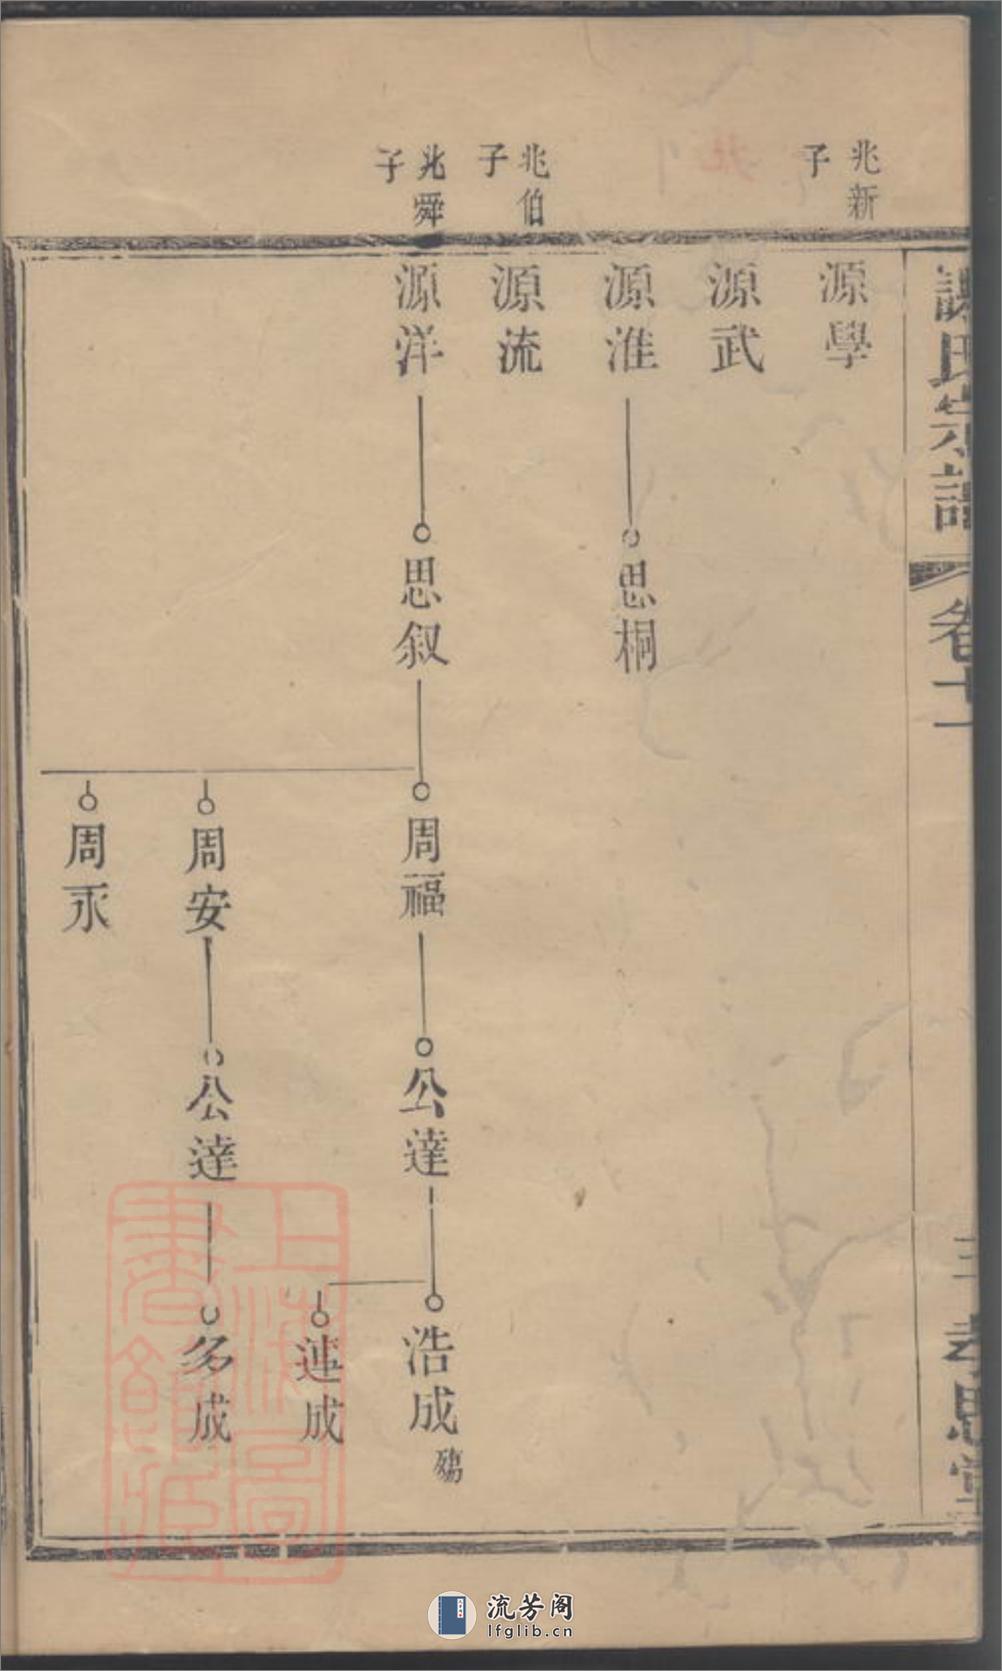 謝氏宗譜
卷十一
孝思堂
兆新
子
源學
源武
源淮
思桐
兆伯
子
源流
兆舜
子
源洋
思叙
周福
公達
浩成
殤
連成
周安
公達
多成
周永
上海圖
書館藏
流芳阁
lfglib.cn